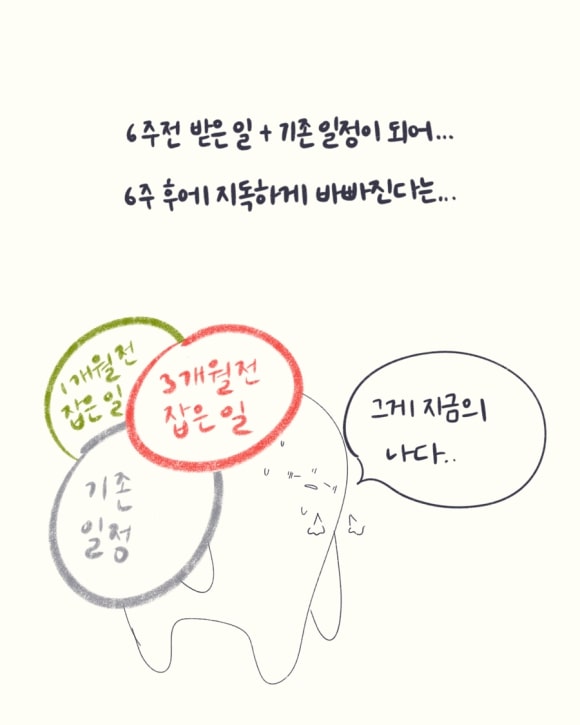 6주전 받은 일 + 기존 일정이 되어...
6주 후에 지독하게 바빠진다는...
1개월전
잡은 일
3개월전
잡은 일
기존
일정
그게 지금의
나다..